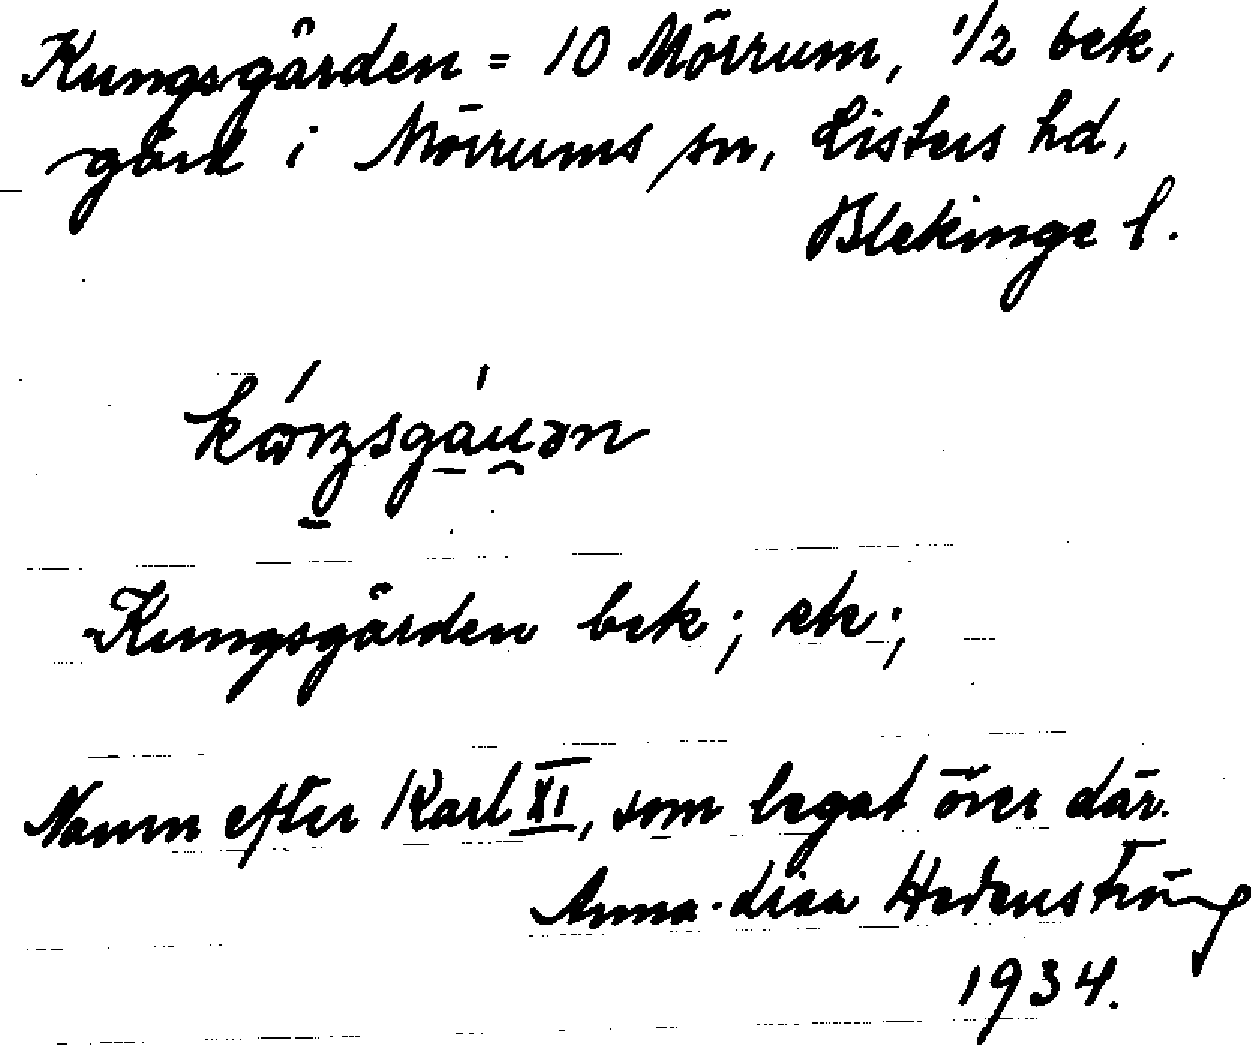 Kungsgården = 10 Mörrum, 1/2 bek,
gård i Mörrums sn, Listers hd,
Blekinge l.
Kungsgården bek; ek;,
Namn efter Karl XI, som legat över där.
Anna-Lisa Hedenström
1934.